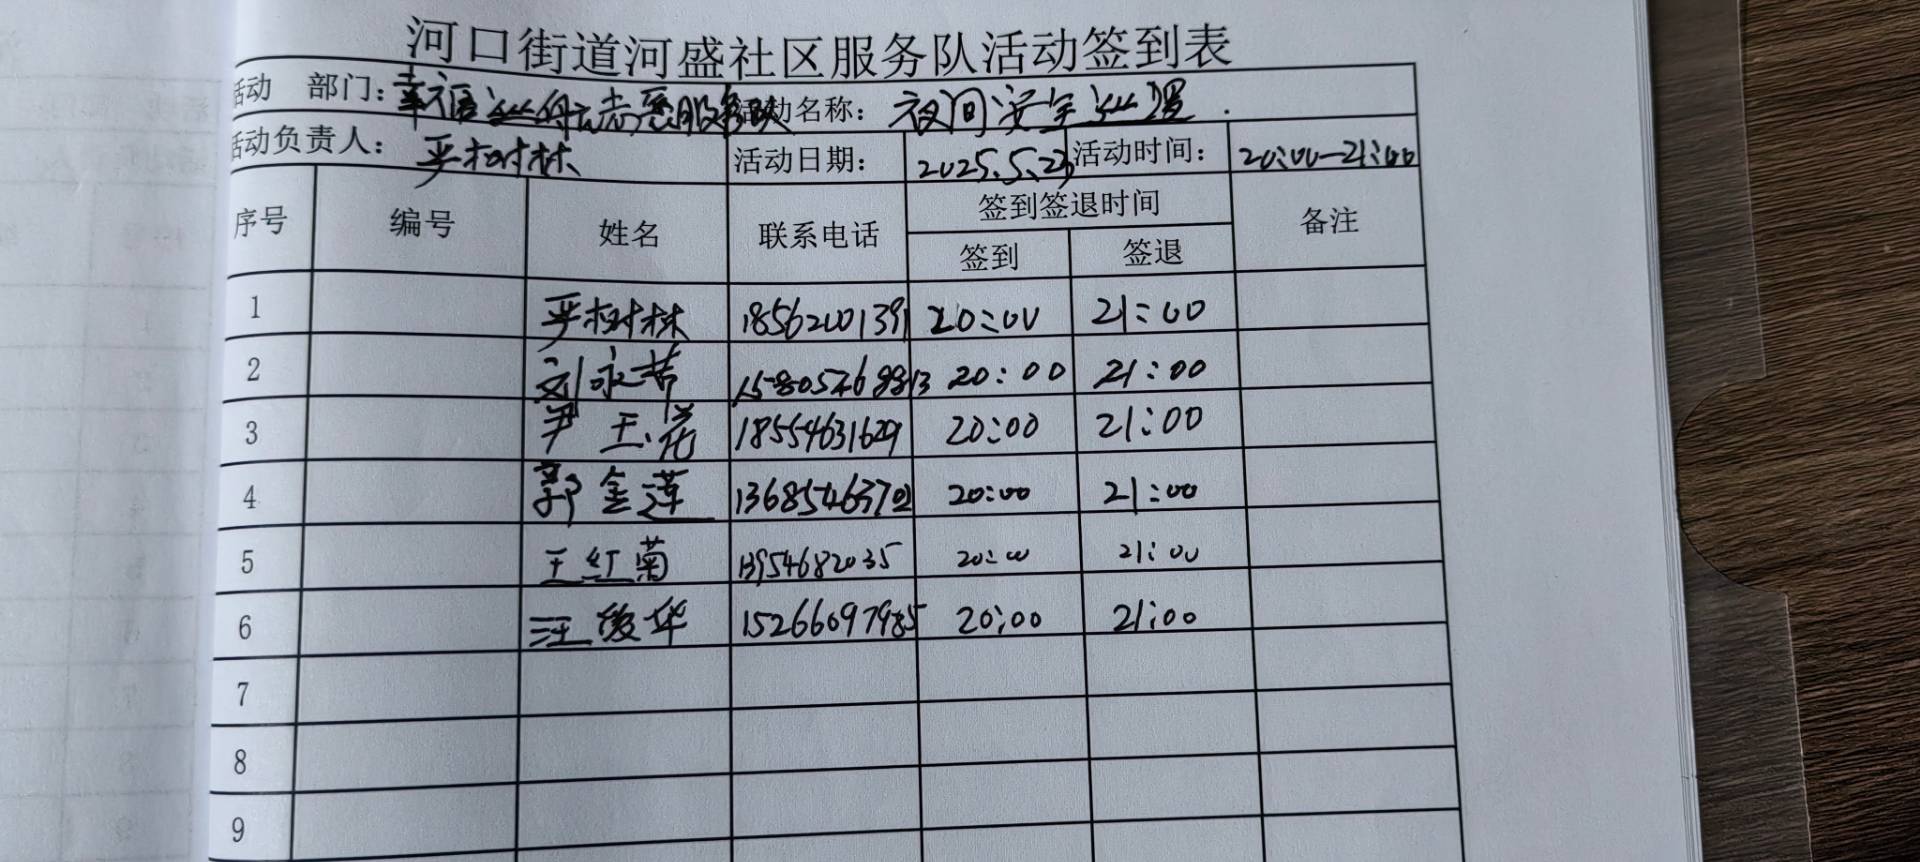 河口街道河盛社区服务队活动签到表
活动 部门：幸福 志愿服务队 活动名称：夜间安全巡逻
活动负责人：严树林 活动日期：2025.5.23 活动时间：20:00-21:00
序号 编号 姓名 联系电话 签到签退时间 备注
签到 签退
1 严树林 18562001391 20:00 21:00
2 刘永苦 15805468813 20:00 21:00
3 尹玉花 18554631629 20:00 21:00
4 郭金莲 13685463702 20:00 21:00
5 王红菊 13954682035 20:00 21:00
6 汪俊华 15266097985 20:00 21:00
7
8
9